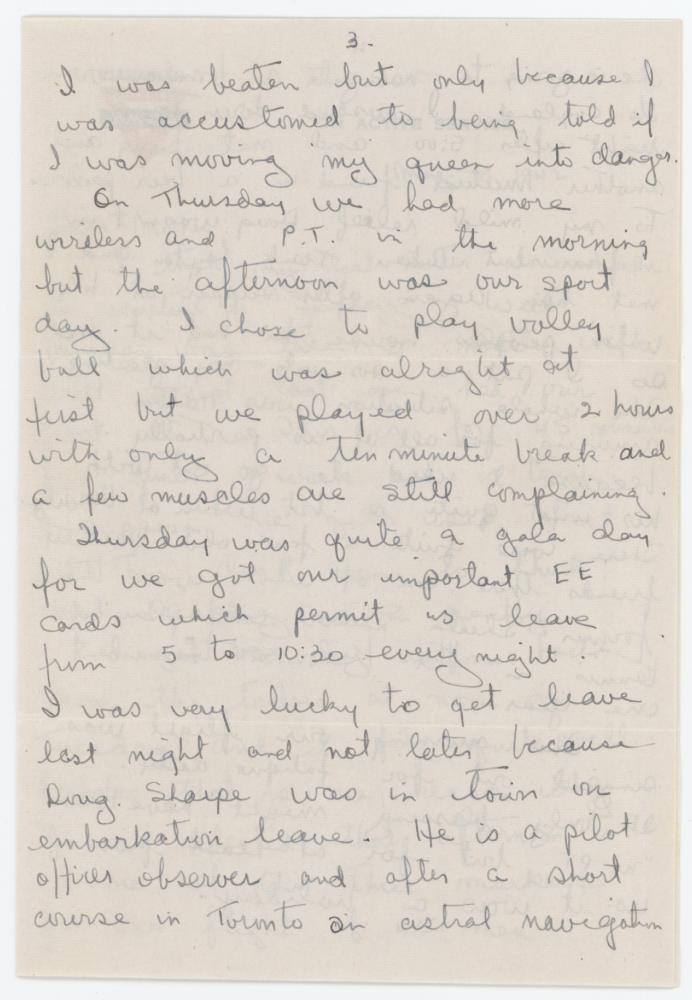 3.
I was beaten but only because I
was accustomed to being told if
I was moving my queen into danger.
On Thursday we had more
wireless and P.T. in the morning
but the afternoon was our sport
day. I chose to play volley
ball which was alright at
first but we played over 2 hours
with only a ten minute break and
a few muscles are still complaining.
Thursday was quite a gala day
for we got our important EE
cards which permit us leave
from 5 to 10:30 every night.
I was very lucky to get leave
last night and not later because
Doug. Sharpe was in town on
embarkation leave. He is a pilot
officer observer and after a short
course in Toronto on astral navigation